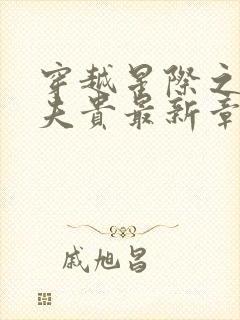 穿越星际之
夫贵最新章
戚旭昌